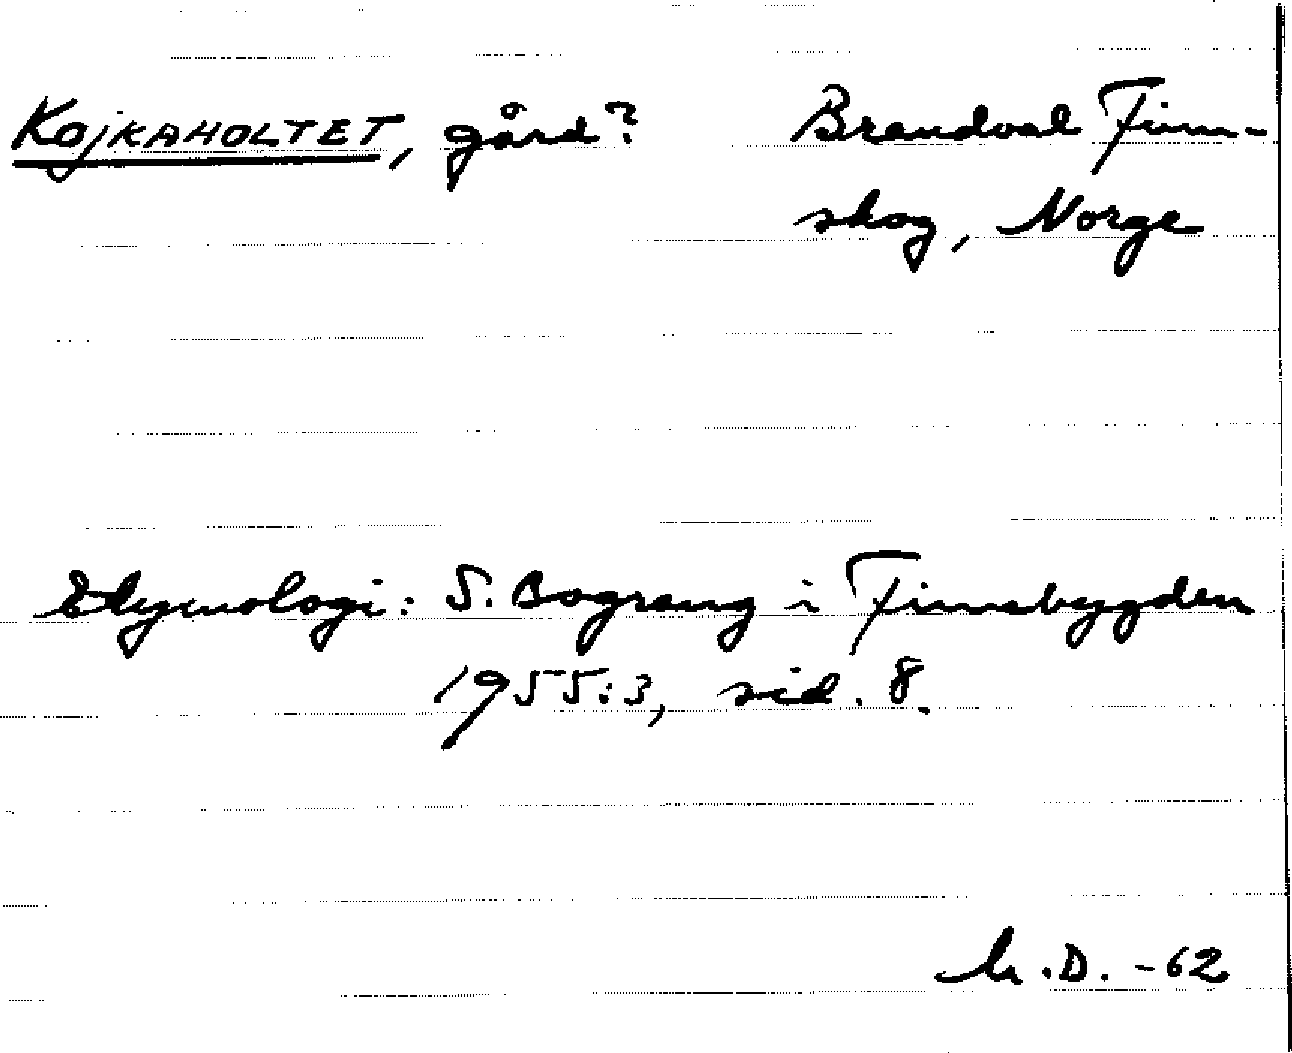 KOJKAHOLTET, gård? Brandval Finn-
skog, Norge
Etymologi: S. Bograng i Finnsbygden
1955:3, sid. 8.
D. -62